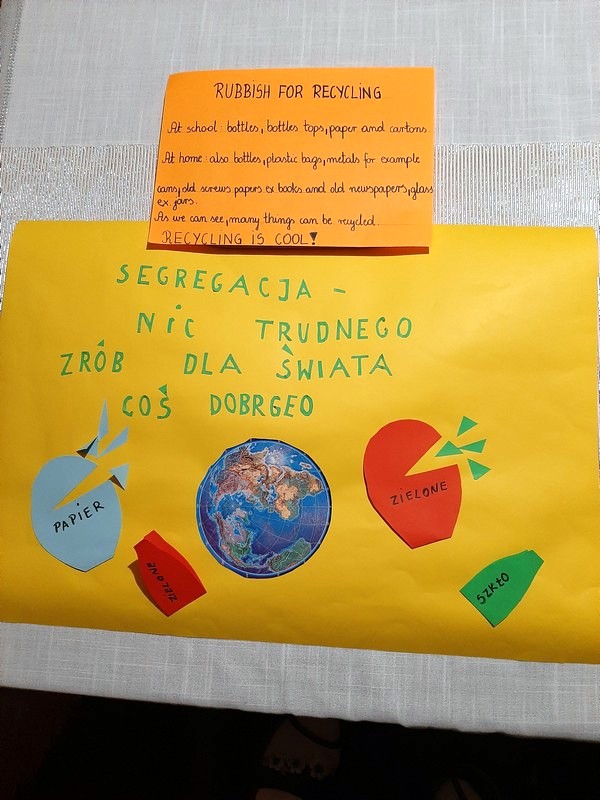 RUBBISH FOR RECYCLING
At school: bottles, bottles tops, paper and cartons
At home: also bottles, plastic bags, metals for example
cans, old screws papers ex books and old newspapers, glass
ex. jars.
As we can see, many things can be recycled.
RECYCLING IS COOL!
SEGREGACJA -
NIC TRUDNEGO
ZRÓB DLA ŚWIATA
COŚ DOBRGEO
PAPIER
ZIELONE
ZIELONE
SZKŁO